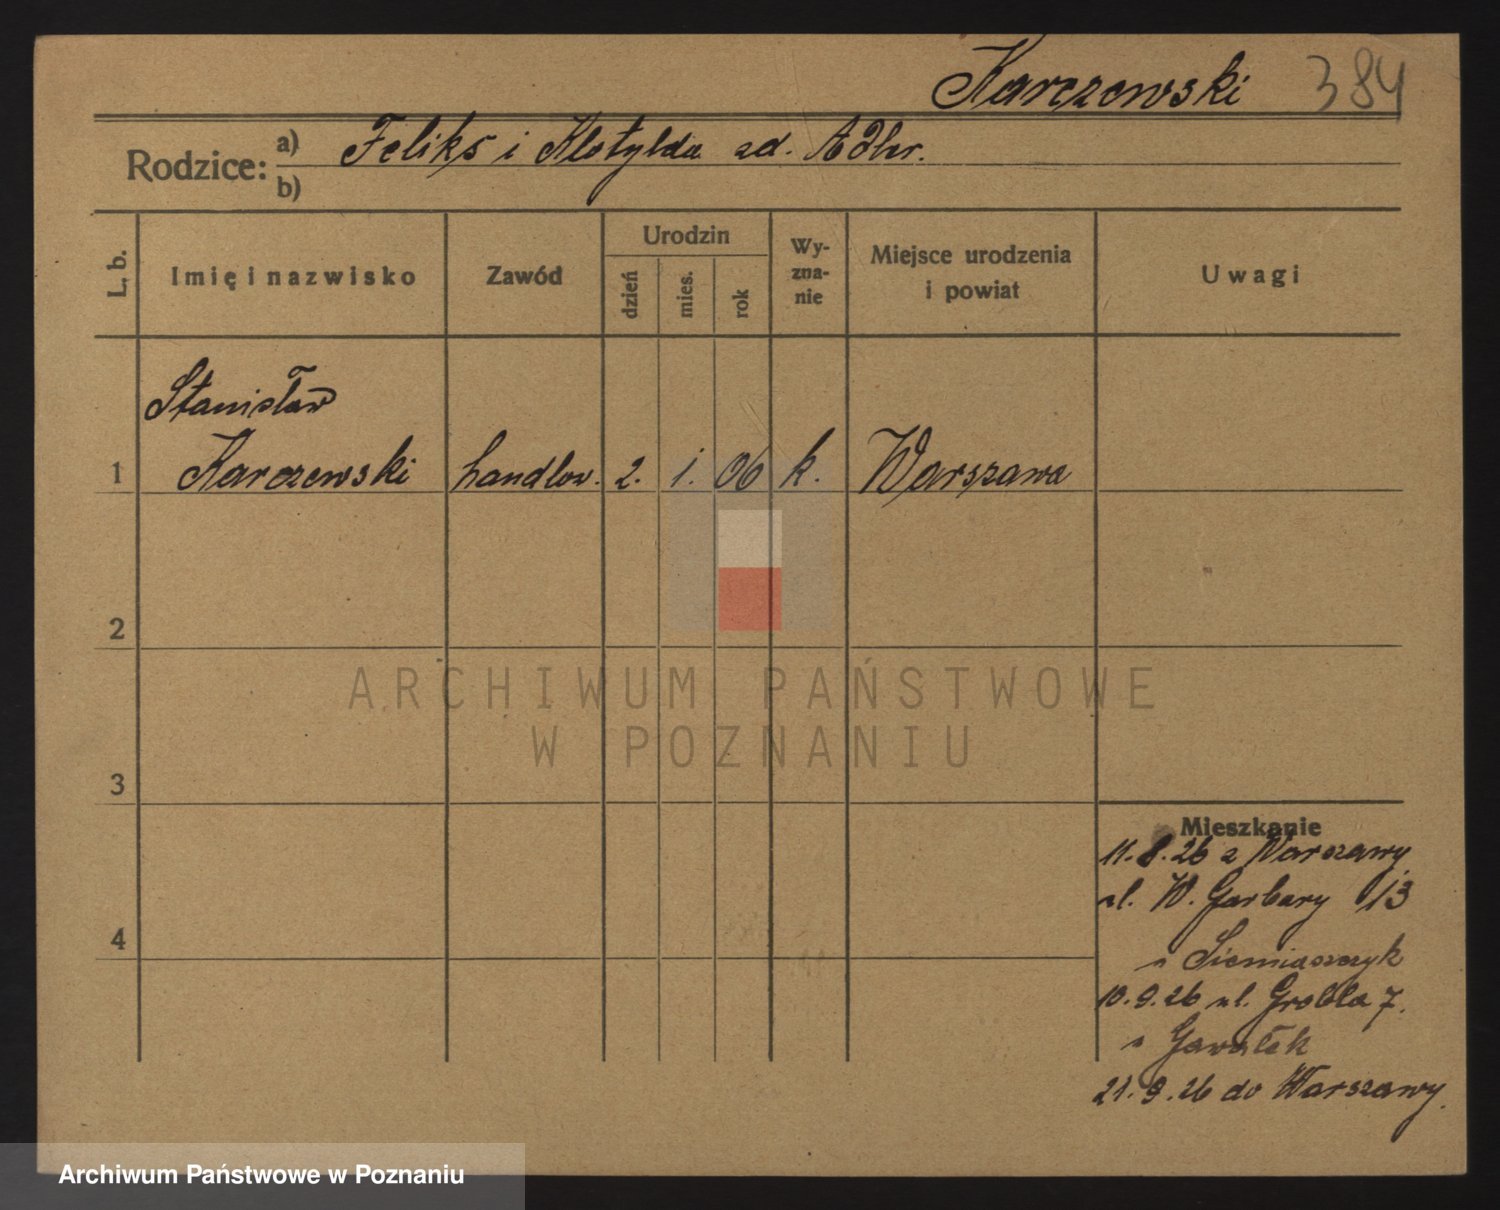 Karczewski 384
Rodzice: a) Feliks i Klotylda zd. Adler.
b)
L. b.
Imię i nazwisko
Zawód
Urodzin
dzień
mies.
rok
Wy-
zna-
nie
Miejsce urodzenia
i powiat
Uwagi
Stanisław
1 Karczewski handlow. 2. 1. 06 k. Warszawa
2
ARCHIWUM PAŃSTWOWE
W POZNANIU
3
Mieszkanie
11.8.26 z Warszawy
ul. W. Garbary 13
4
u Siemiaszczyk
10.9.26 ul. Grobla 7.
u Gawałek
21.9.26 do Warszawy.
Archiwum Państwowe w Poznaniu